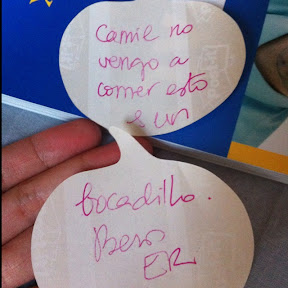 Camie no
vengo a
comer esto
es un
bocadillo.
Beso
ER